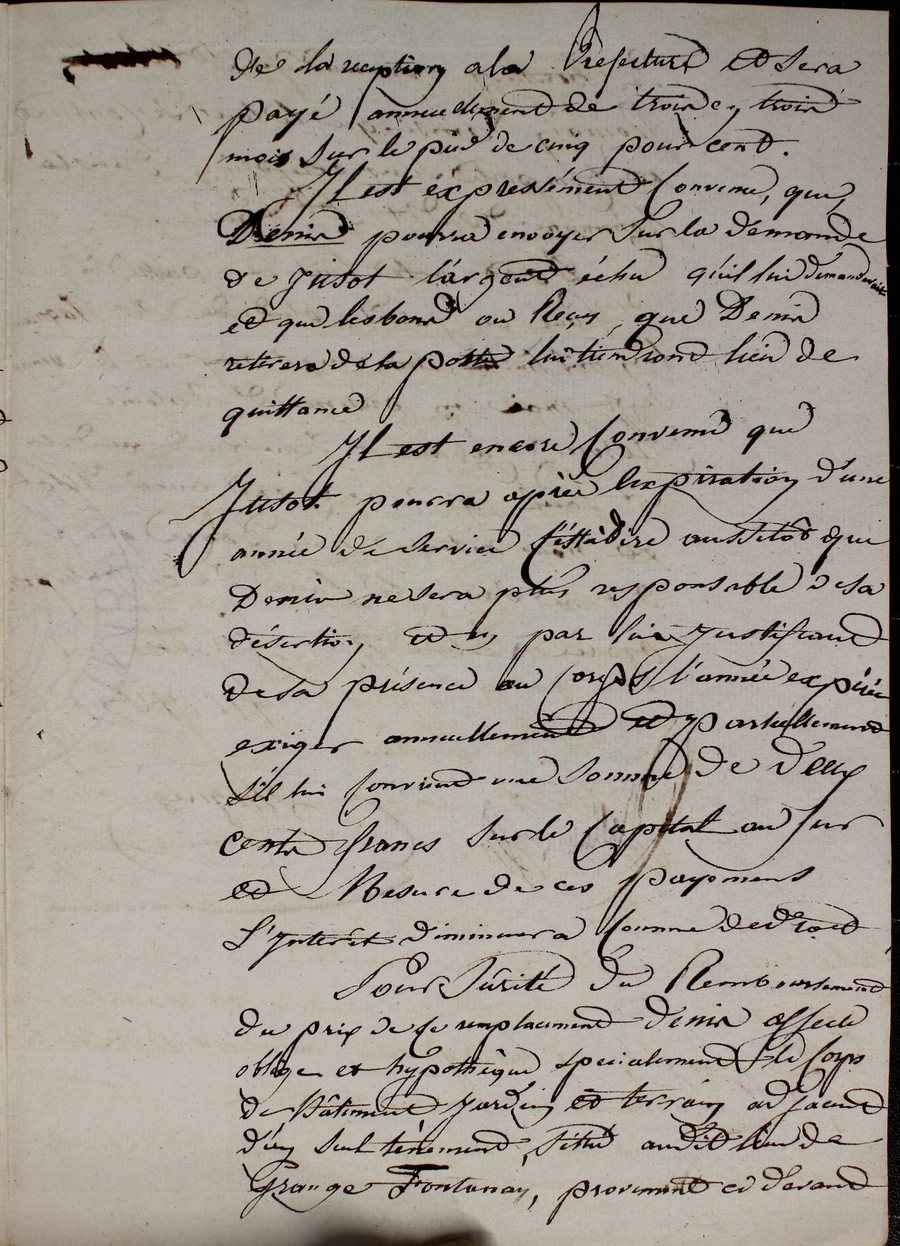 de la reception a la Prefecture et sera
payé annuellement de trois en trois
mois sur le pied de cinq pour cent.
Il est éxpressément Convenu, que
Denis pourra envoyer sur la demande
de Jusot l'argent échu qu'il lui demanderait
et que les bons ou Reçus, que Denis
retirera de la poste lui tiendront lieu de
quittance
Il est encore Convenu que
Jusot pourra après l'expiration d'une
année de service C'est à dire aussitôt que
Denis ne sera plus responsable de sa
désertion, et en par lui Justifiant
de sa présence au Corps l'année expirée
exiger annuellement et partiellement
s'il lui Convient une somme de deux
cents francs sur le Capital au fur
et Mesure de ces payemens
L'Interêt diminuera Comme de droit
Pour Sûrité du Remboursement
du prix de ce remplacement Denis affecte
oblige et hypothèque spécialement le Corps
de Bâtiment Jardin et terrain adjacent
d'un seul tenement, situé audit lieu de
Grange Fontenay, provenant ci devant